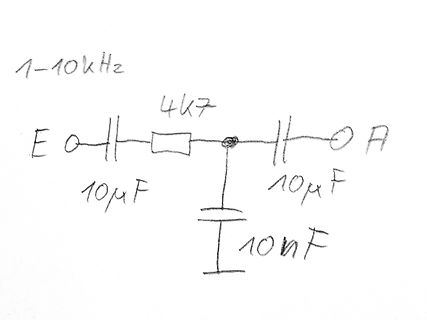 1-10kHz
4k7
E A
10µF 10µF
10nF